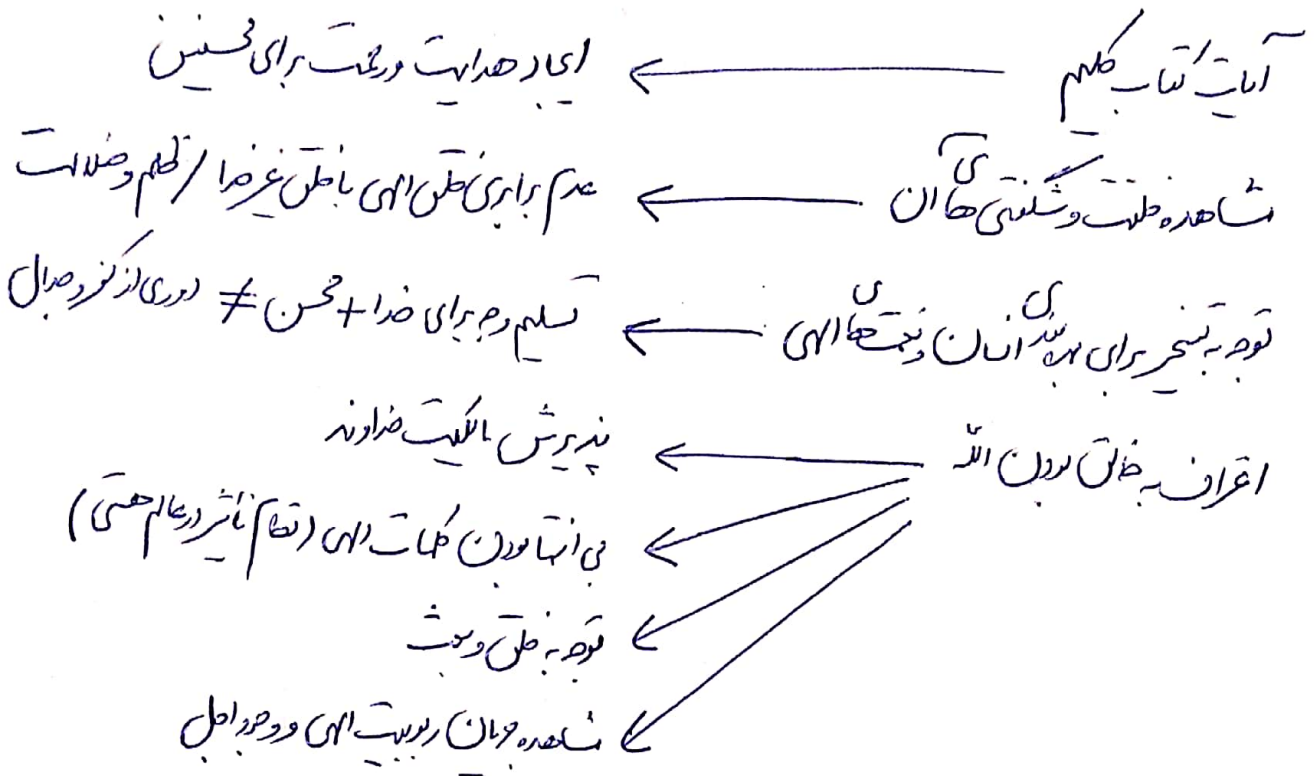 آیات کتاب حکیم ← ایجاد هدایت و رحمت برای محسنین
مشاهده خلقت و شگفتی‌های آن ← عدم برابری خلق الهی با خلق غیر خدا / ظلم و ضلالت
توجه به تسخیر برای بهره‌مندی انسان و نعمت‌های الهی ← تسلیم وجه برای خدا + محسن ≠ دوری از کفر و جدال
اعتراف به خالق بودن الله ← پذیرش مالکیت خداوند
← بی انتها بودن کلمات الهی (نظام تأثیر در عالم هستی)
← توجه به خلق و بعث
← مشاهده جریان ربوبیت الهی و وجود اجل